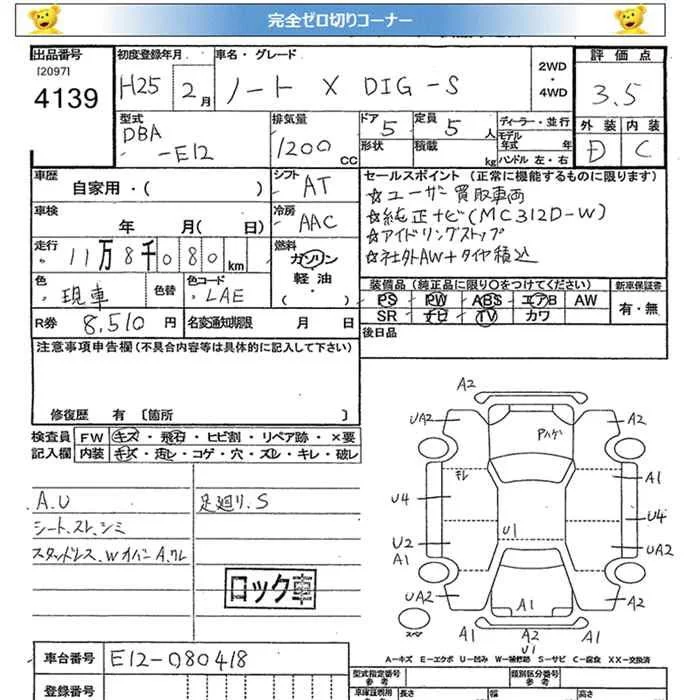 完全ゼロ切りコーナー
出品番号
[2097]
4139
初度登録年月
H25 2月
車名・グレード
ノート X DIG-S
2WD
・
4WD
評価点
3.5
外装 内装
D C
型式
DBA
-E12
排気量
1200 CC
ドア 5
形状
定員 5 人
積載 kg
ディーラー・並行
モデル年式 年
ハンドル 左・右
車歴
自家用・( )
シフト AT
セールスポイント (正常に機能するものに限ります)
☆ユーザー買取車両
☆純正ナビ(MC312D-W)
☆アイドリングストップ
☆社外AW+タイヤ積込
車検 年 月( 日)
冷房 AAC
走行 11万8千080km
燃料
ガソリン
軽油
・( )
色 現車
色替
色コード LAE
装備品 (純正品に限り○をつけてください)
新車保証書
有・無
PS PW ABS エアB AW
SR ナビ TV カワ
R券 8,510 円
名変通知期限 月 日
後日品
注意事項申告欄 (不具合内容等は具体的に記入して下さい)
修復歴 有 [箇所 ]
検査員記入欄
FW キズ・飛石・ヒビ割・リペア跡・×要
内装 キズ・汚レ・コゲ・穴・ズレ・キレ・破レ
A.U
足廻り.S
シート.スレ.シミ
スタッドレス、Wオバン A.ワレ
ロック車
A2
UA2 A2
Pハゲ
キレ A1
U4 U4
U1
U2 UA2
A1
UA2 A1 A2
スペア
A1 A2 A1
U1
A-キズ E-エクボ U-凹み W-補修跡 S-サビ C-腐食 XX-交換済
車台番号 E12-080418
登録番号
型式指定番号
参考
類別区分番号
参考
車庫証明用
参考
長さ 幅 高さ